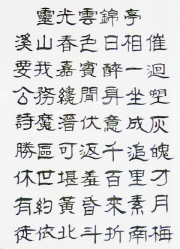 靈光雲錦亭
溪山春色日相催
要我嘉賓醉一迴
公務纔閒坐塑
詩魔潛伏意成灰
勝區可返千追魄
休堪羞百里才
有約黃昏來素月
徙依北斗折南梅